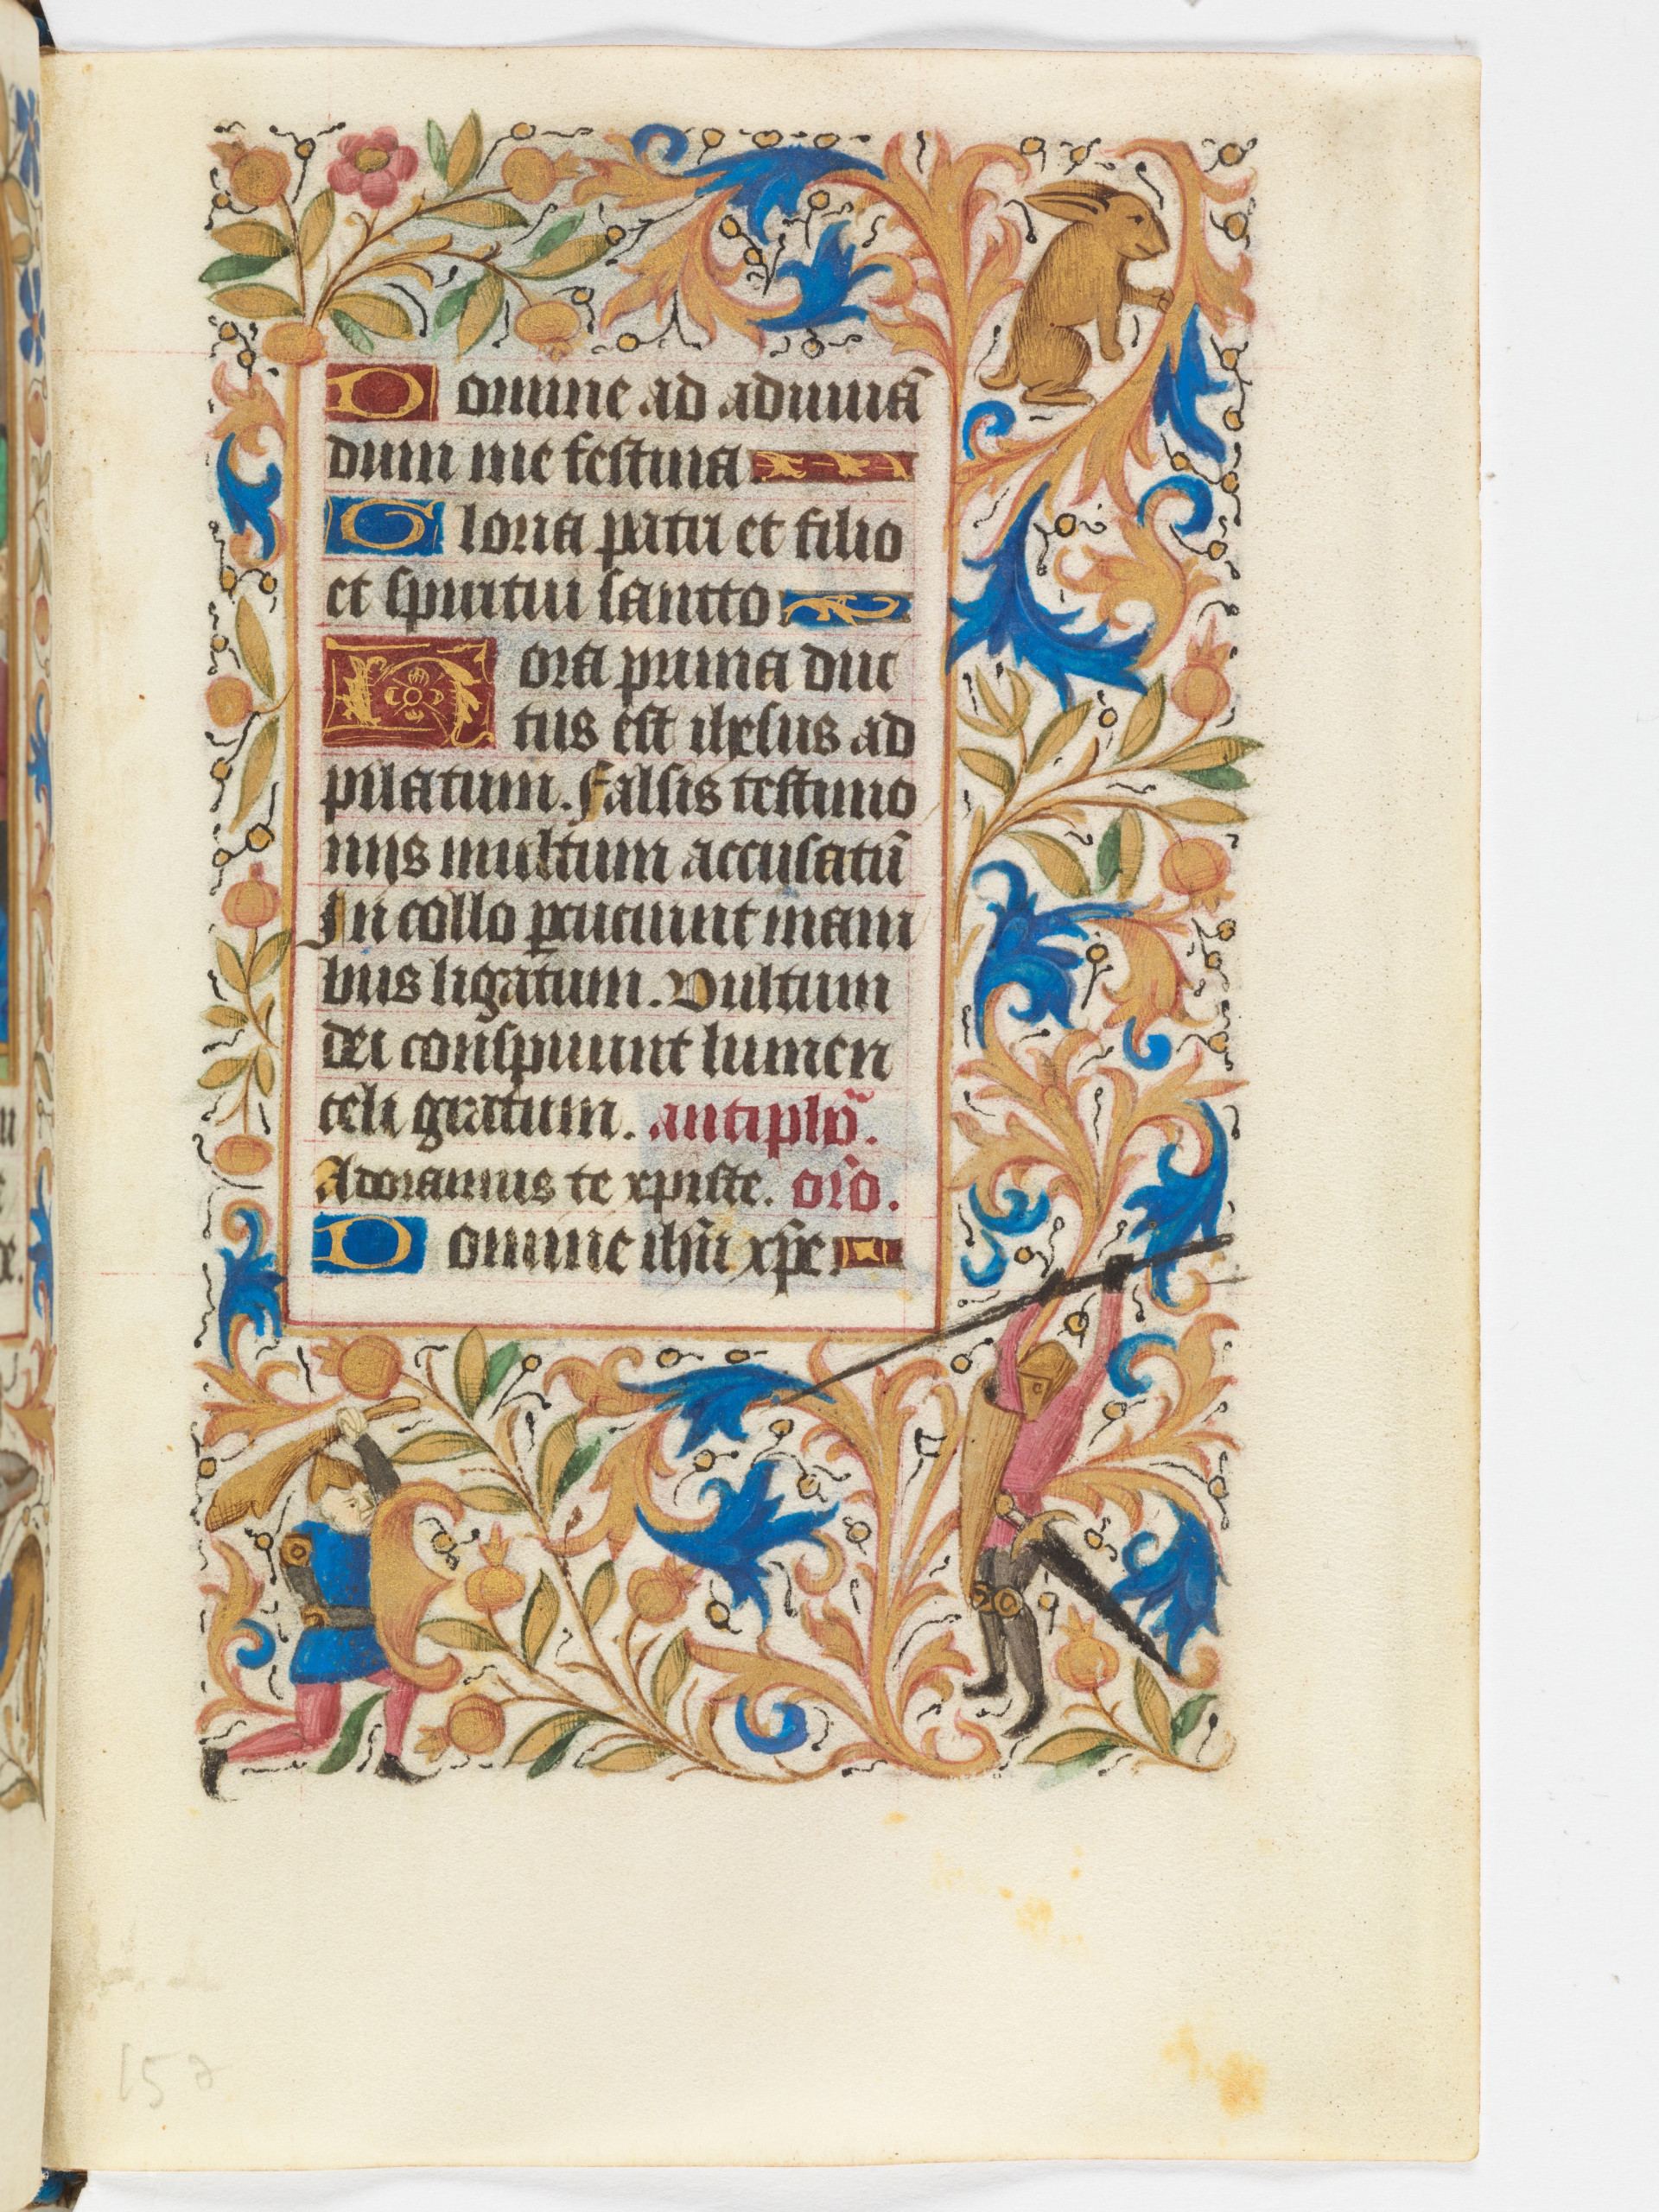 Domine ad adiuuā
dum me festina
Gloria patri et filio
et spiritui santto
Hora prima duc
tus est ihesus ad
pilatum. Falsis testimo
niis multum accusatū
In collo ꝑcuciunt mani
bus ligatum. Vultum
dei conspuunt lumen
celi gratum. antiphō.
Adoramus te xpiste. orō.
Domine ihū xp̄e.